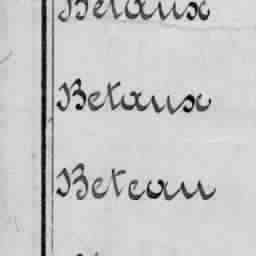 Betaux
Betaux
Beteau